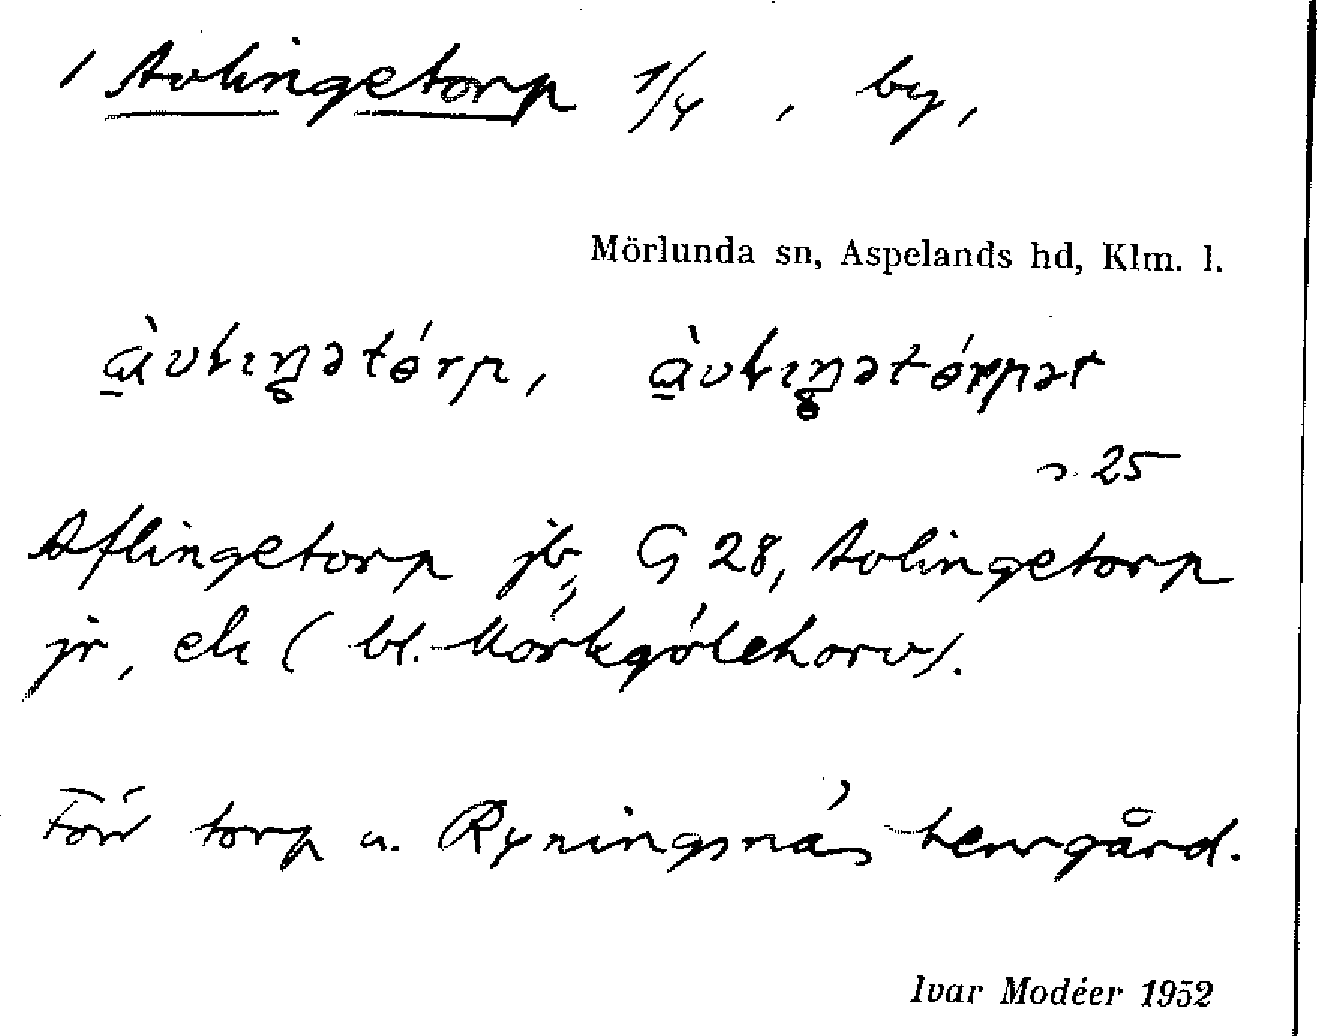 1 Avlingetorp 1/4 , by,
Mörlunda sn, Aspelands hd, Klm. l.
s. 25
Aflingetorp jb, G 28, Avlingetorp
jr, ek (bl. Mörkgölehorv).
Förr torp u. Ryningsnäs herrgård.
Ivar Modéer 1952